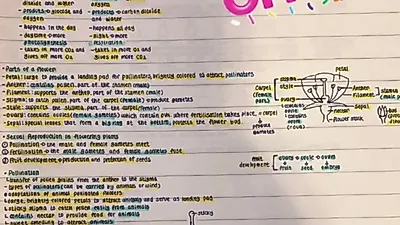 dioxide and water
oxygen
- produces glucose and oxygen
- produces carbon dioxide and water
- happens in the day
- happens all day
- daytime → more photosynthesis
- night → more respiration
- takes in more CO2 and gives off more O2
- takes in more O2 and gives off more CO2
- Parts of a flower
• Petal: large to provide a landing pad for pollinators, brightly colored to attract pollinators
• Anther: contains pollen, part of the stamen (male)
• Filament: supports the anther, part of the stamen (male)
• Stigma: to catch pollen, part of the carpel (female)
• Style: supports the stigma, part of the carpel (female)
• Ovary: contains ovules (female gametes) which contain ova where fertilization takes place, = carpel
• Sepal: special leaves that form a big ring at the bottom, protects the flower bud
Carpel (female parts)
stigma
style
ovary
petal
Anther
Filament
stamen
Sepal
ovule
flower stalk
carpel
produce gametes
- Sexual Reproduction in flowering plants
① Pollination → the male and female gametes meet
② Fertilization → the male gametes and female gametes fuse
③ Fruit development → production and protection of seeds
fruit development:
ovary → ovule → ovum
fruit
seed
embryo
- Pollination
• transfer of pollen grains from the anther to the stigma
• types of pollinators (can be carried by animals or wind)
• adaptations of animal pollinated flowers
• large, brightly colored petals to attract animals and serve as landing pad
• sticky stigma to catch pollen easily from animals
• contains nectar to provide food for animals
• sweet smelling to attract animals
sticky